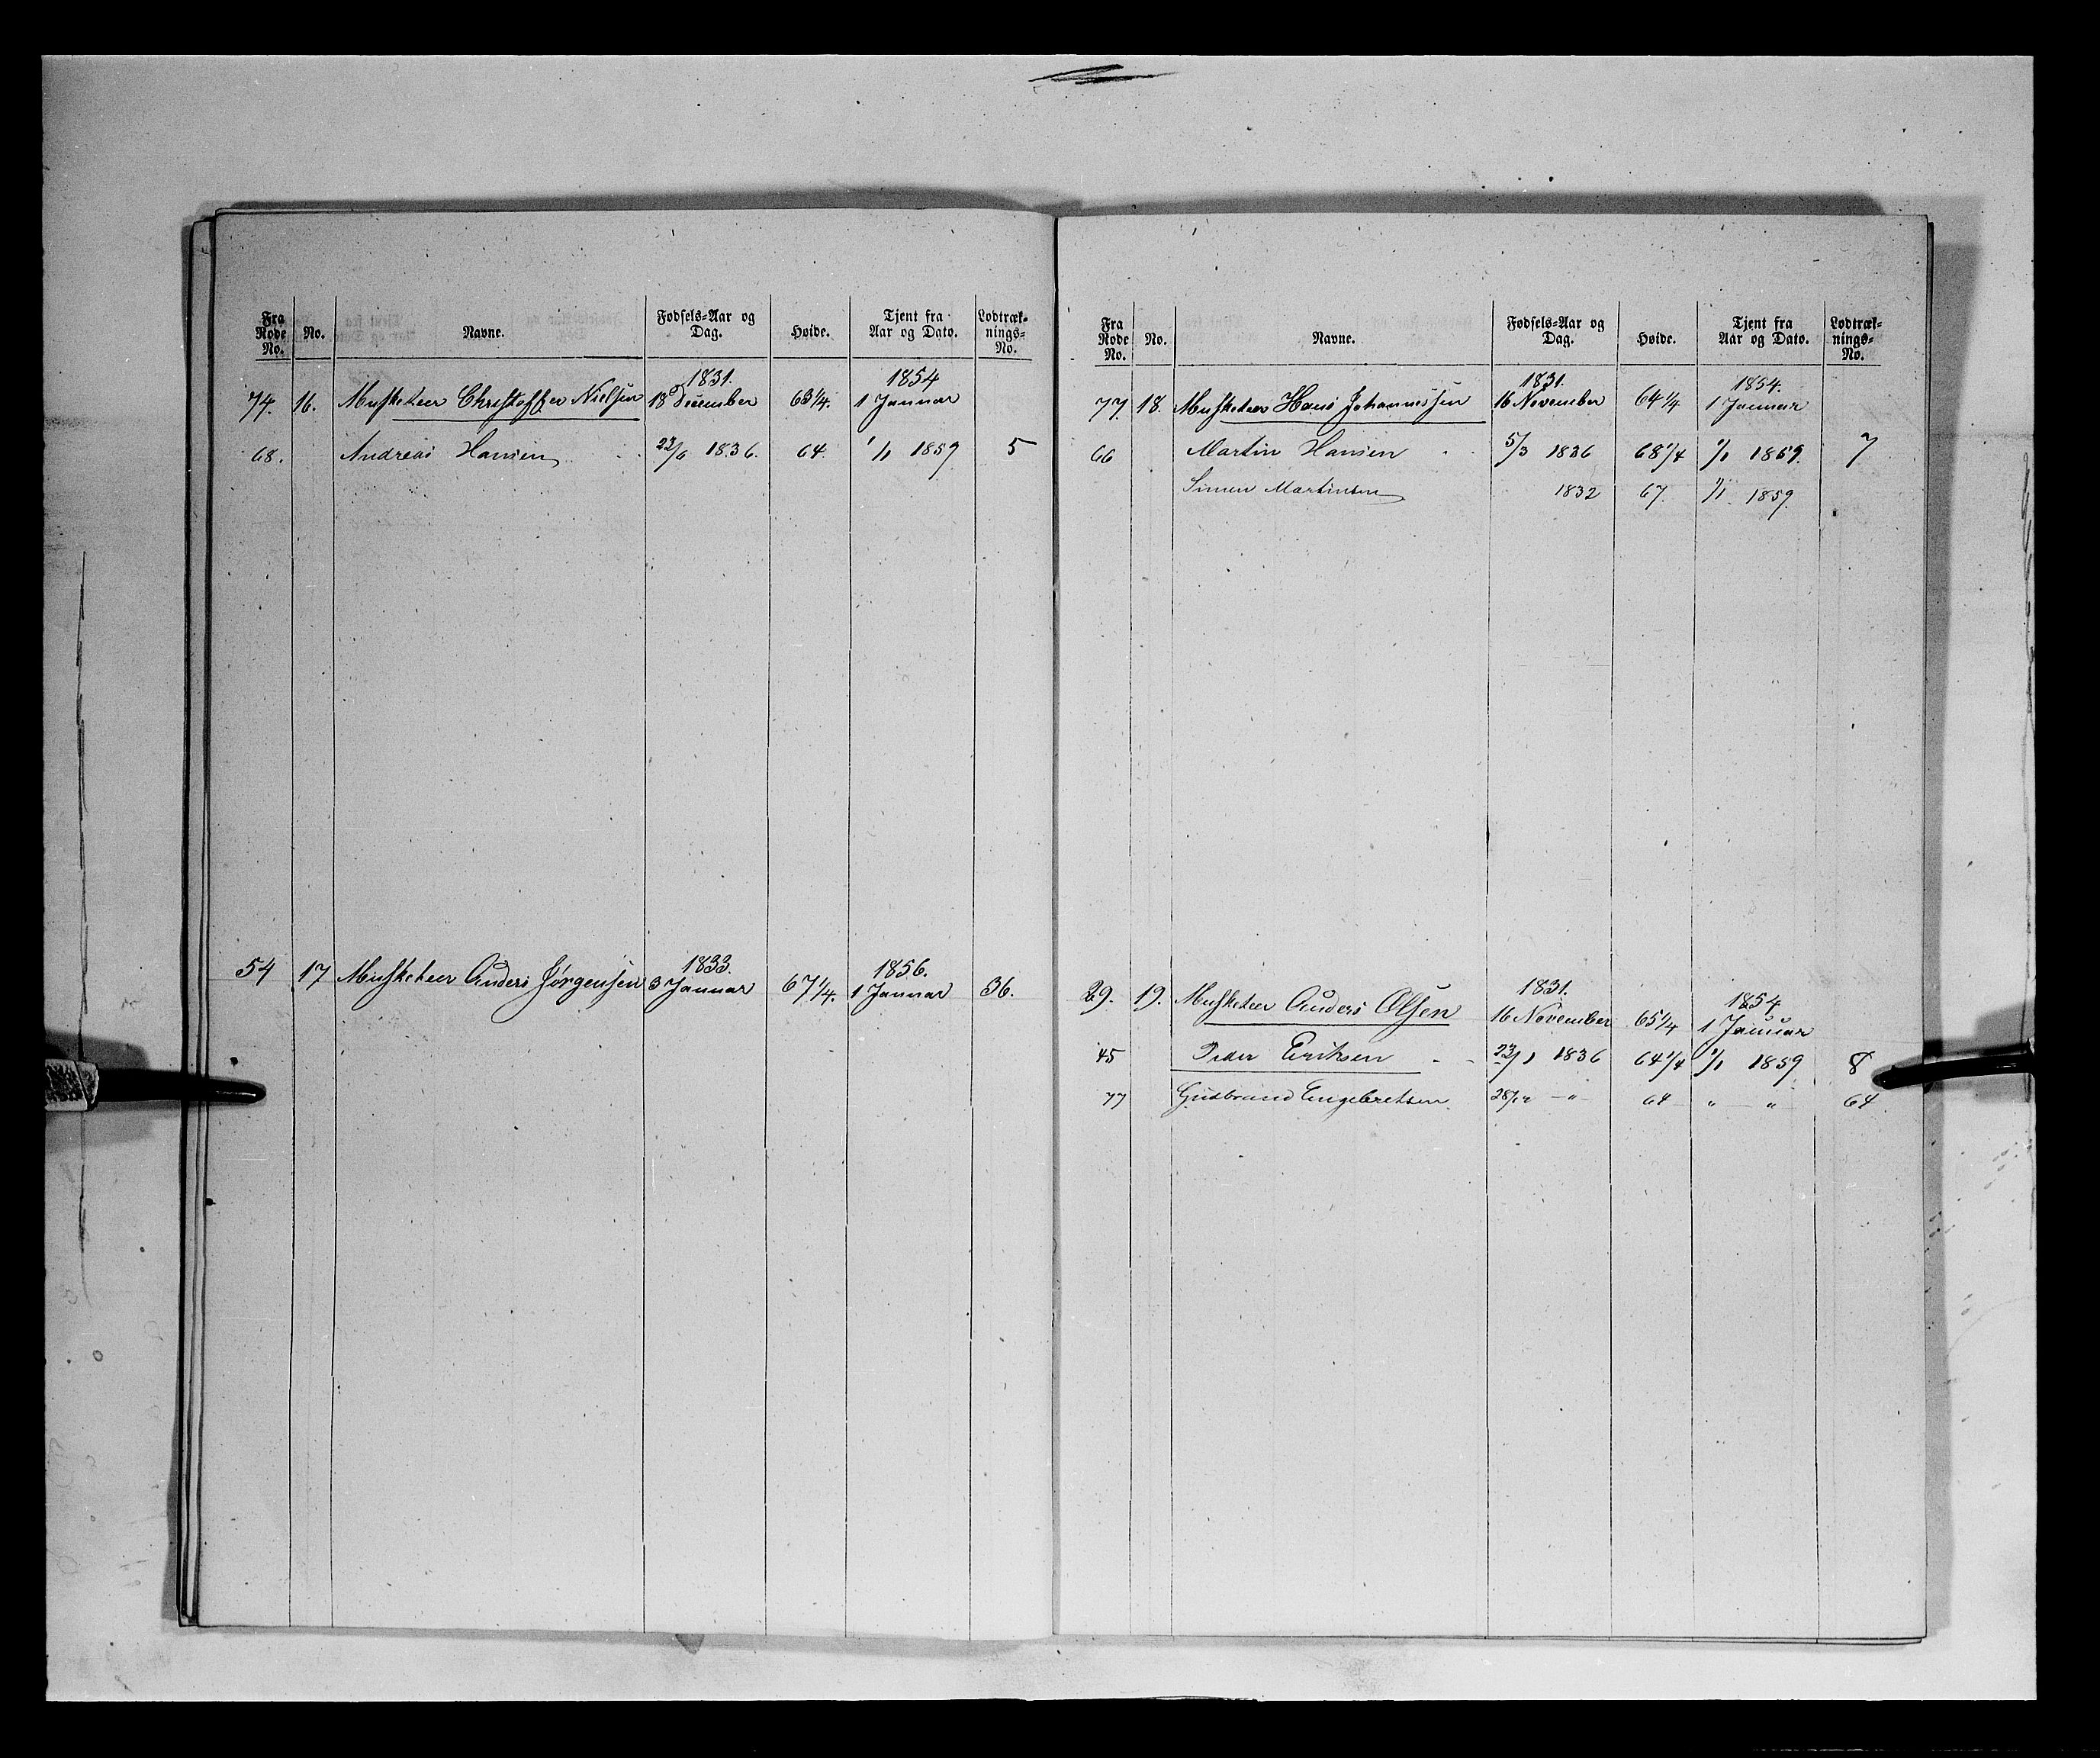 Fra Rode No. | No. | Navne. | Fødsels-Aar og Dag. | Høide. | Tjent fra Aar og Dato. | Lodtræk-nings-No.
1831. 1854
74. 16. Musketeer Christoffer Nielsen 18 December 63 1/4. 1 Januar
68. Andreas Hansen 23/6 1836. 64 1/1 1859 5
1833. 1856.
54 17 Musketeer Anders Jørgensen 3 Januar 67 1/4. 1 Januar 36.
Fra Rode No. | No. | Navne. | Fødsels-Aar og Dag. | Høide. | Tjent fra Aar og Dato. | Lodtræk-nings-No.
1831. 1854.
77. 18. Musketeer Hans Johannessen 16 November 64 1/4 1 Januar
66 Martin Hansen 5/3 1836 68 1/4 1/1 1859. 7
Simen Martinsen 1832 67. 1/1 1859.
1831. 1854
29. 19. Musketeer Anders Olsen 16 November 65 1/4 1 Januar
45 Peder Eriksen 23/1 1836 64 1/4 1/1 1859 8
77 Gudbrand Engebretsen 64 " " 64